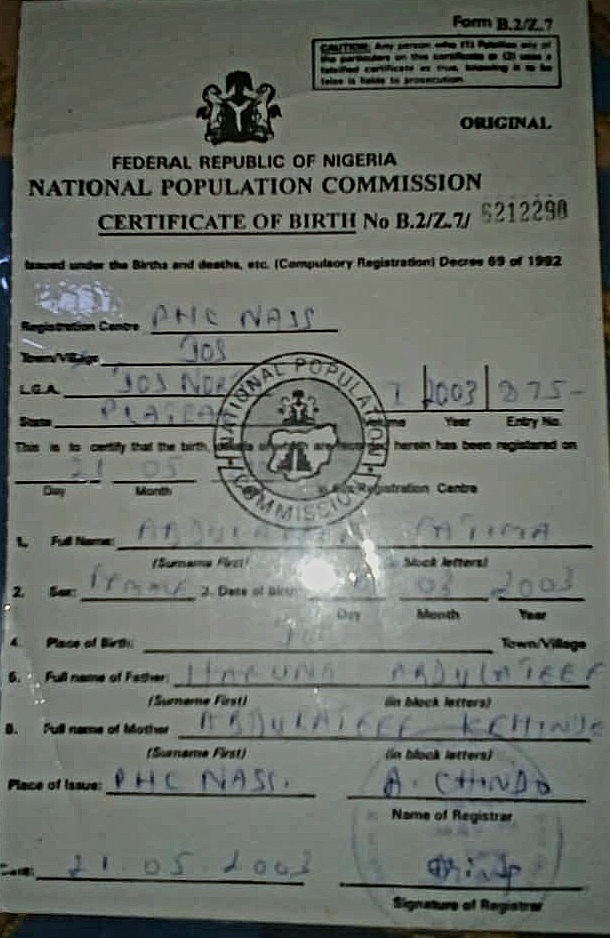 Form B.2/Z.7
CAUTION: Any person who (1) falsifies any of
the particulars on this certificate or (2) uses a
falsified certificate as true, knowing it to be
false is liable to prosecution.
ORIGINAL
FEDERAL REPUBLIC OF NIGERIA
NATIONAL POPULATION COMMISSION
CERTIFICATE OF BIRTH No B.2/Z.7/ 6212290
Issued under the Births and deaths, etc. (Compulsory Registration) Decree 69 of 1992
Registration Centre PHC NASS
Town/Village JOS
L.G.A. JOS NOR 1 2003 875-
State PLATEA Year Entry No.
This is to certify that the birth, herein has been registered on
21 05
Day Month Registration Centre
NATIONAL POPULATION COMMISSION
1. Full Name: ABDULATEEF FATIMA
(Surname First) block letters)
2. Sex: FEMALE 3. Date of Birth 03 2003
Day Month Year
4. Place of Birth: JOS Town/Village
5. Full name of Father: HARUNA ABDULATEEF
(Surname First) (in block letters)
6. Full name of Mother ABDULATEEF KEHINDE
(Surname First) (in block letters)
Place of Issue: PHC NASS. A. CHINDO
Name of Registrar
Date: 21.05.2003
Signature of Registrar